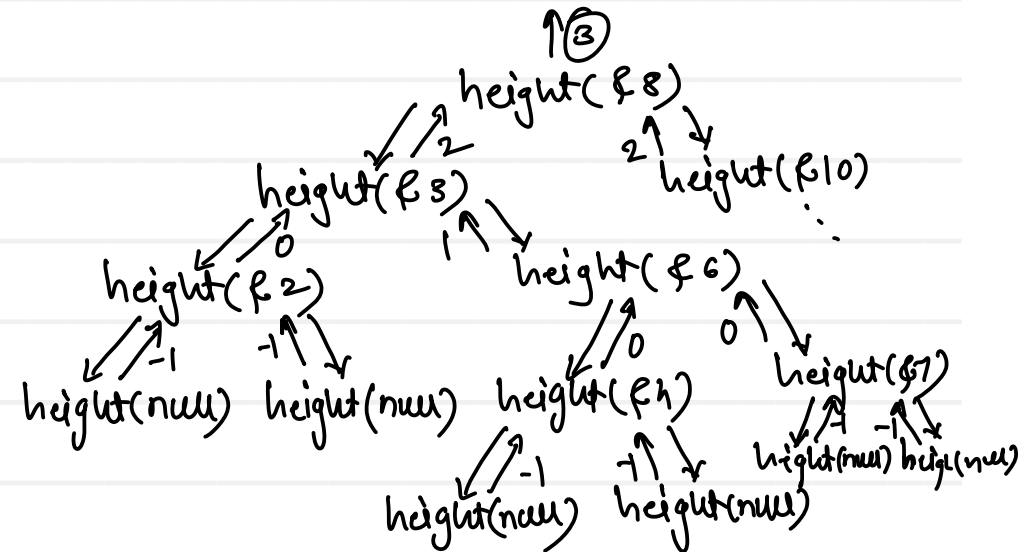 3
height(&8)
2 2
height(&3) height(&10)
0 1
height(&2) height(&6)
-1 -1 0 0
height(null) height(null) height(&4) height(&7)
-1 -1 -1 -1
height(null) height(null)
height(null) height(null)